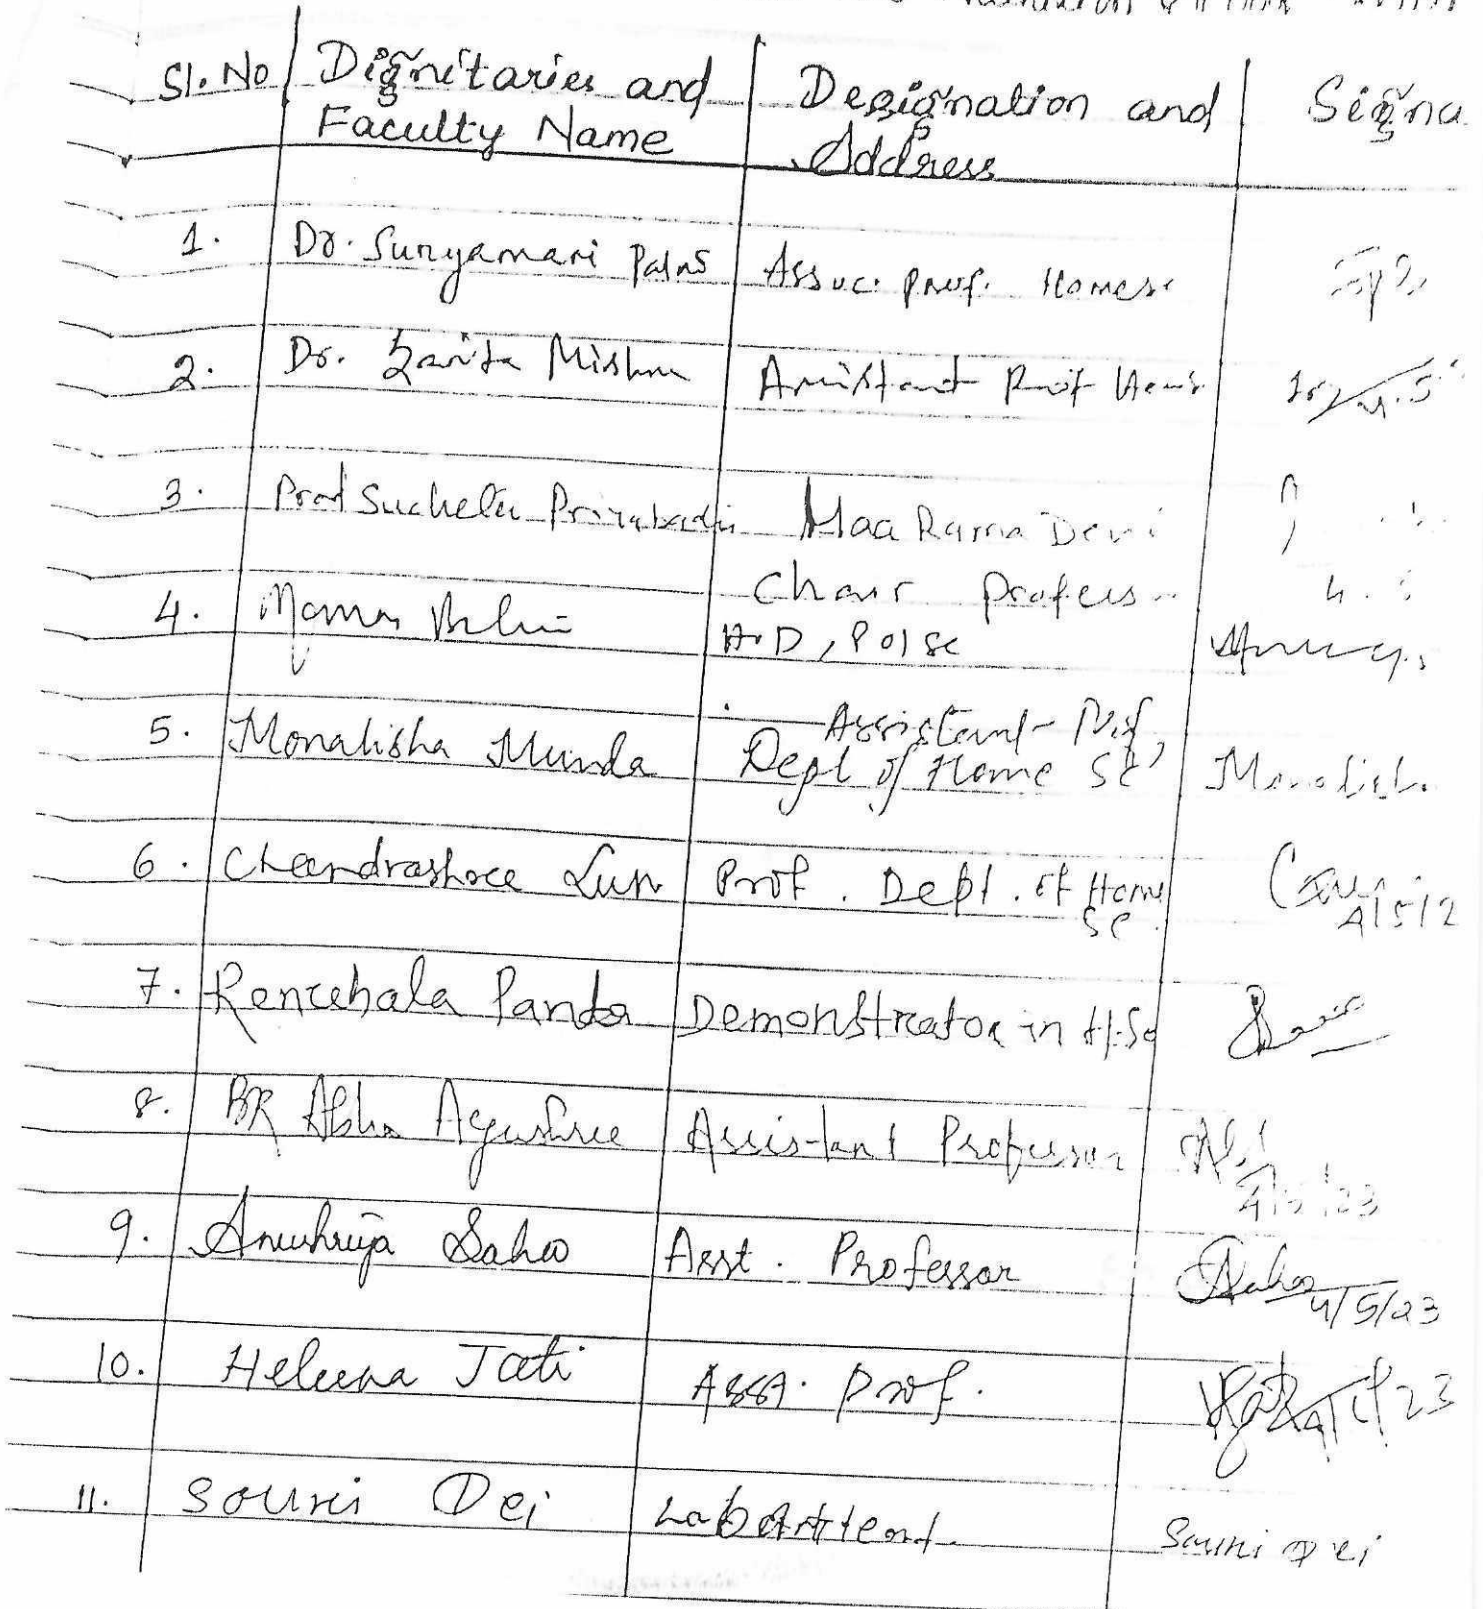 Sl. No Dignitaries and Designation and Signa
Faculty Name Address
1. Dr. Suryamani Assoc. Prof. Homesc
2. Dr. Sarita Mishra Assistant Prof
3. Prof Sucheta Priyabadini Maa Rama Devi
Chair Profess
4. H.O.D, Pol Sc
Assistant Prof,
5. Monalisha Munda Dept of Home Sc, Monalish
6. Chandrashree Prof. Dept. of Home
Sc. 4/5/2
7. Renubala Panda Demonstrator in H.Sc
8. BR Abha Ayushree Assistant Professor
4/5/23
9. Anushriya Sahoo Asst. Professor Sahoo 4/5/23
10. Heleena Jati Asst. Prof. 23
11. Souri Dei Lab Attent. Souri Dei